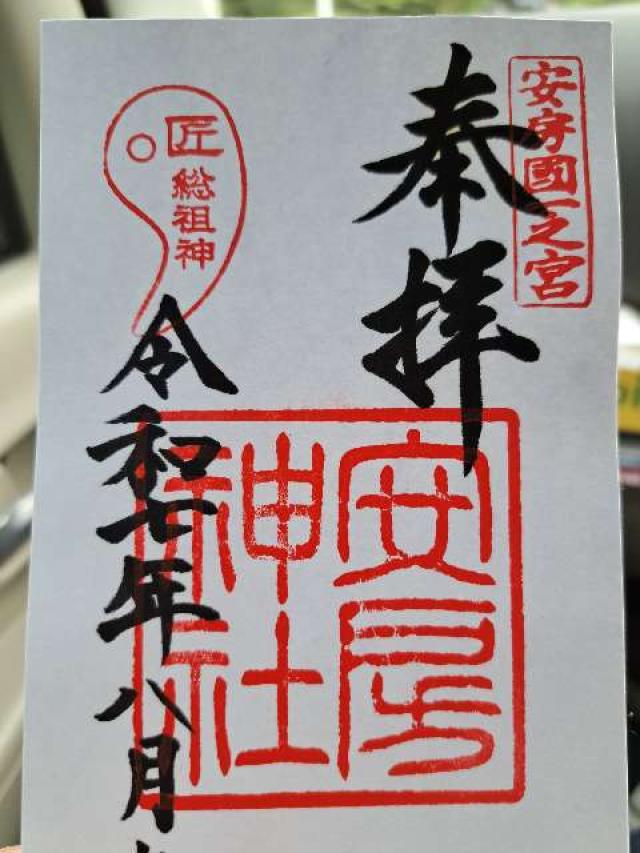 安房國一之宮
奉拝
安房
神社
匠
総祖神
令和七年八月